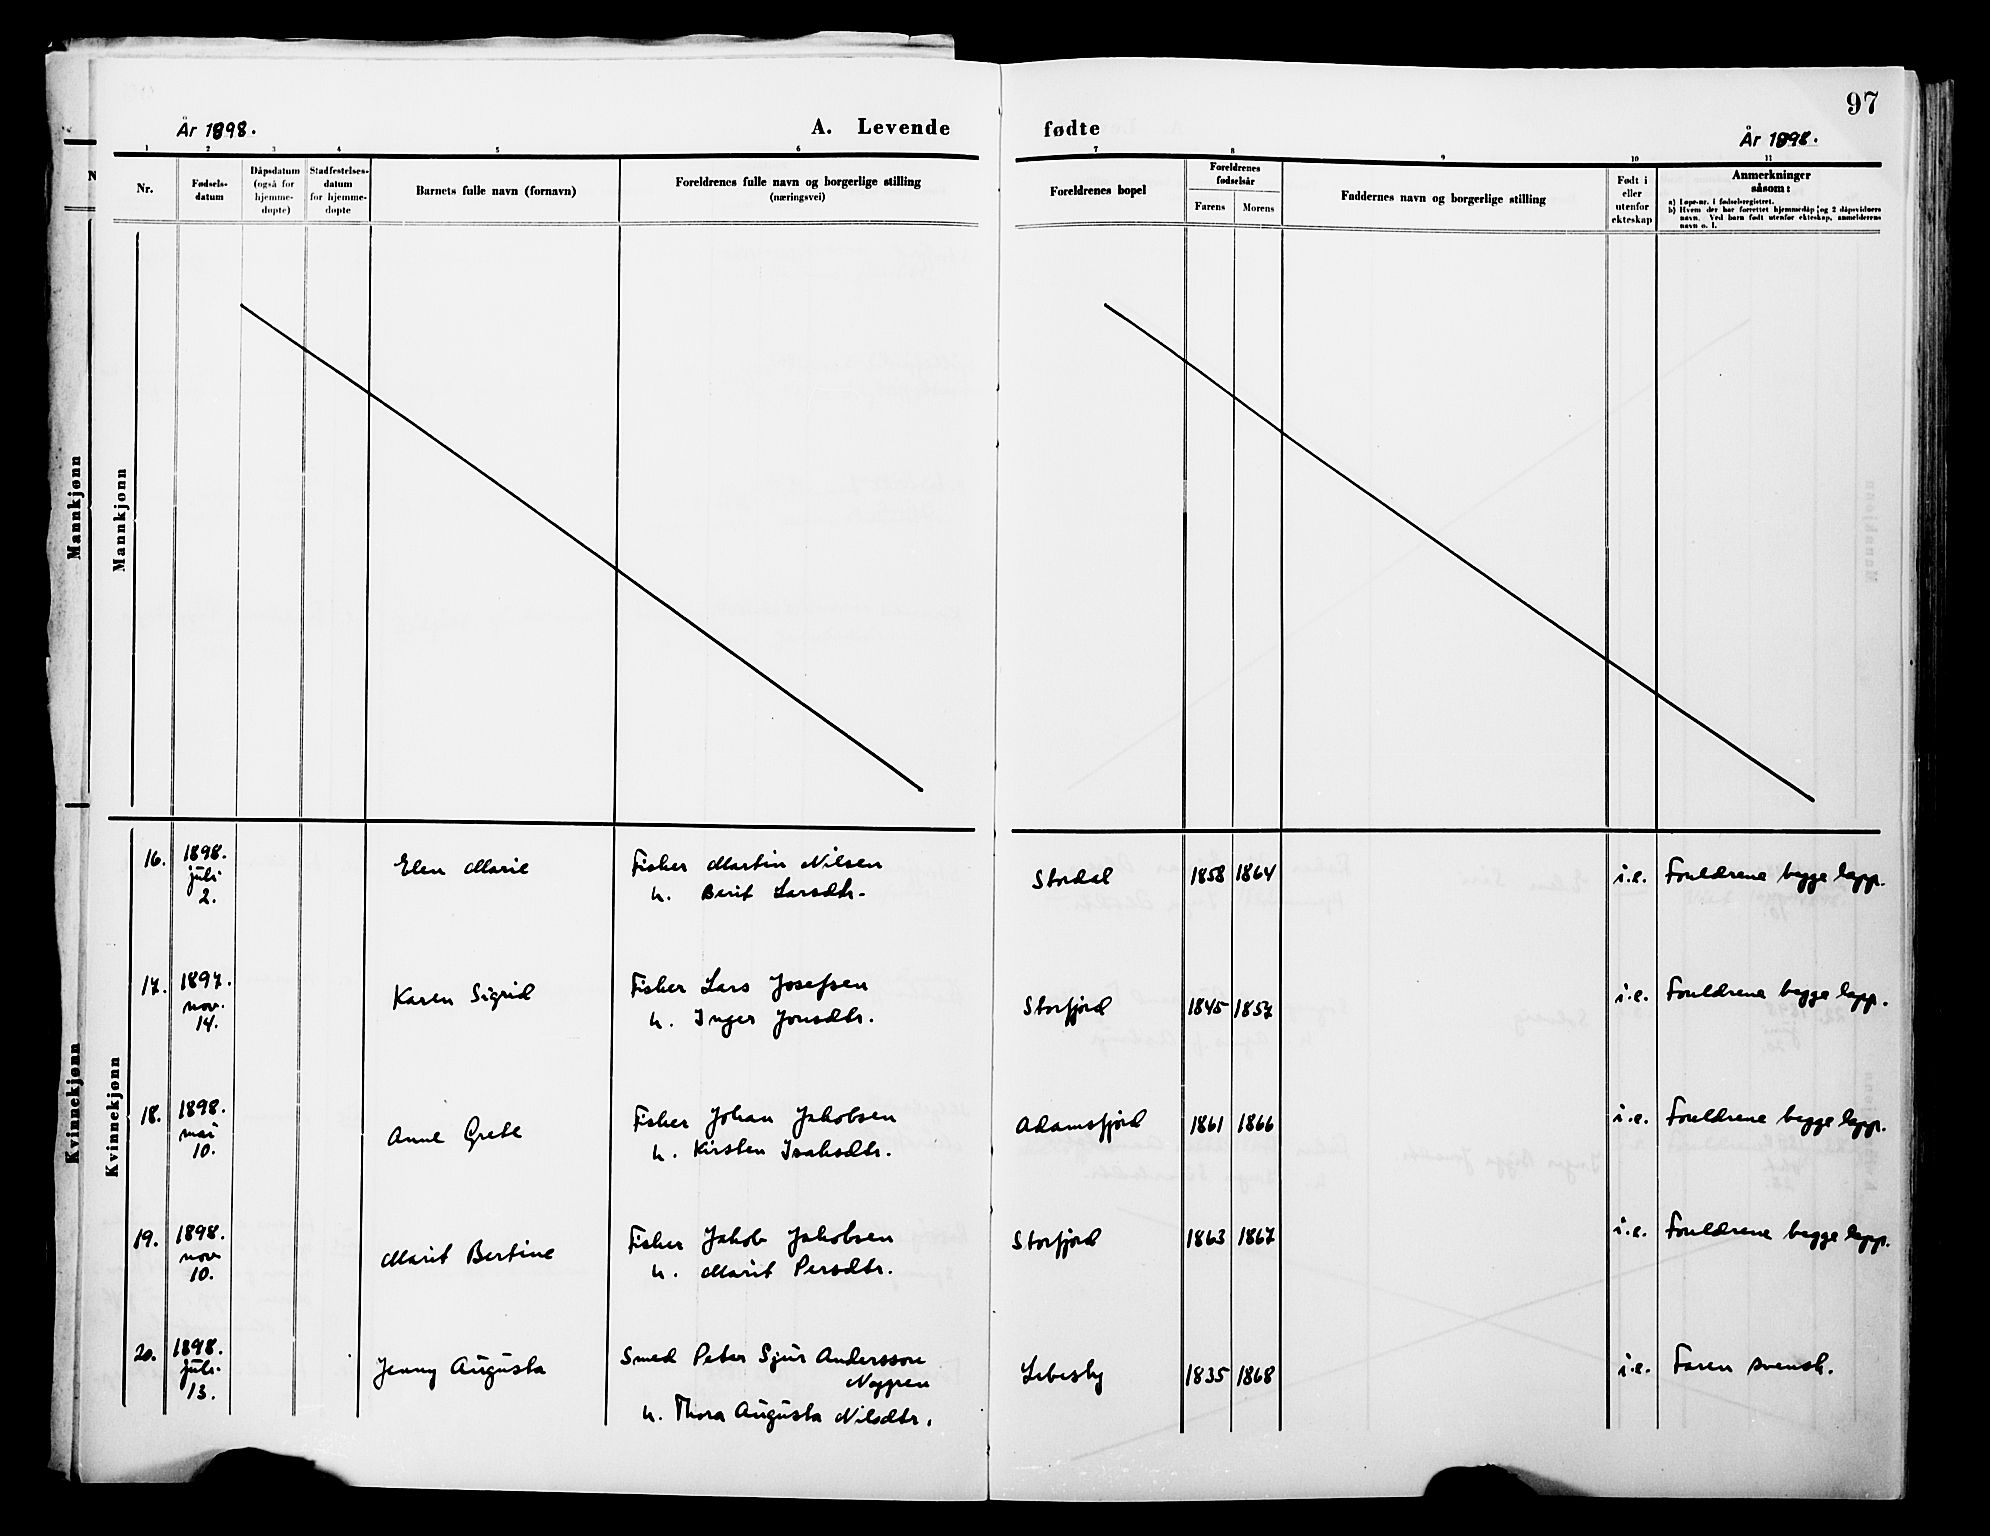 97
År 1898.
A. Levende
fødte
År 1898.
1 2 3 4 5 6
7 8 9 10 11
Nr.
Fødsels-
datum
Dåpsdatum
(også for
hjemme-
døpte)
Stadfestelses-
datum
for hjemme-
døpte
Barnets fulle navn (fornavn)
Foreldrenes fulle navn og borgerlige stilling
(næringsvei)
Foreldrenes bopel
Foreldrenes
fødselsår
Farens
Morens
Faddernes navn og borgerlige stilling
Født i
eller
utenfor
ekteskap
Anmerkninger
såsom:
a) Løpe-nr. i fødselsregistret.
b) Hvem der har forrettet hjemmedåp og 2 dåpsvidners
navn. Ved barn født utenfor ekteskap, anmelderens
navn o. l.
N
Mannkjønn
Mannkjønn
Kvinnekjønn
Kvinnekjønn
16.
1898.
juli
2.
Elen Marie
Fisker Martin Nilsen
h. Berit Larsdtr.
Stordal
1858
1864
i.e.
Foreldrene begge lapp.
17.
1897.
nov.
14.
Karen Sigrid
Fisker Lars Josefsen
h. Inger Jonsdtr.
Storfjord
1845
1857
i.e.
Foreldrene begge lapp.
18.
1898.
mai
10.
Anne Grete
Fisker Johan Jakobsen
h. Kirsten Isaksdtr.
Adamsfjord
1861
1866
i.e.
Foreldrene begge lapp.
19.
1898.
nov
10.
Marit Bertine
Fisker Jakob Jakobsen
h. Marit Persdtr.
Storfjord
1863
1867
i.e.
Foreldrene begge lapp.
20.
1898.
juli.
13.
Jenny Augusta
Smed Peter Sjur Anderssøn
h. Thora Augusta Nilsdtr.
Lebesby
1835
1868
i.e.
Faren svensk.